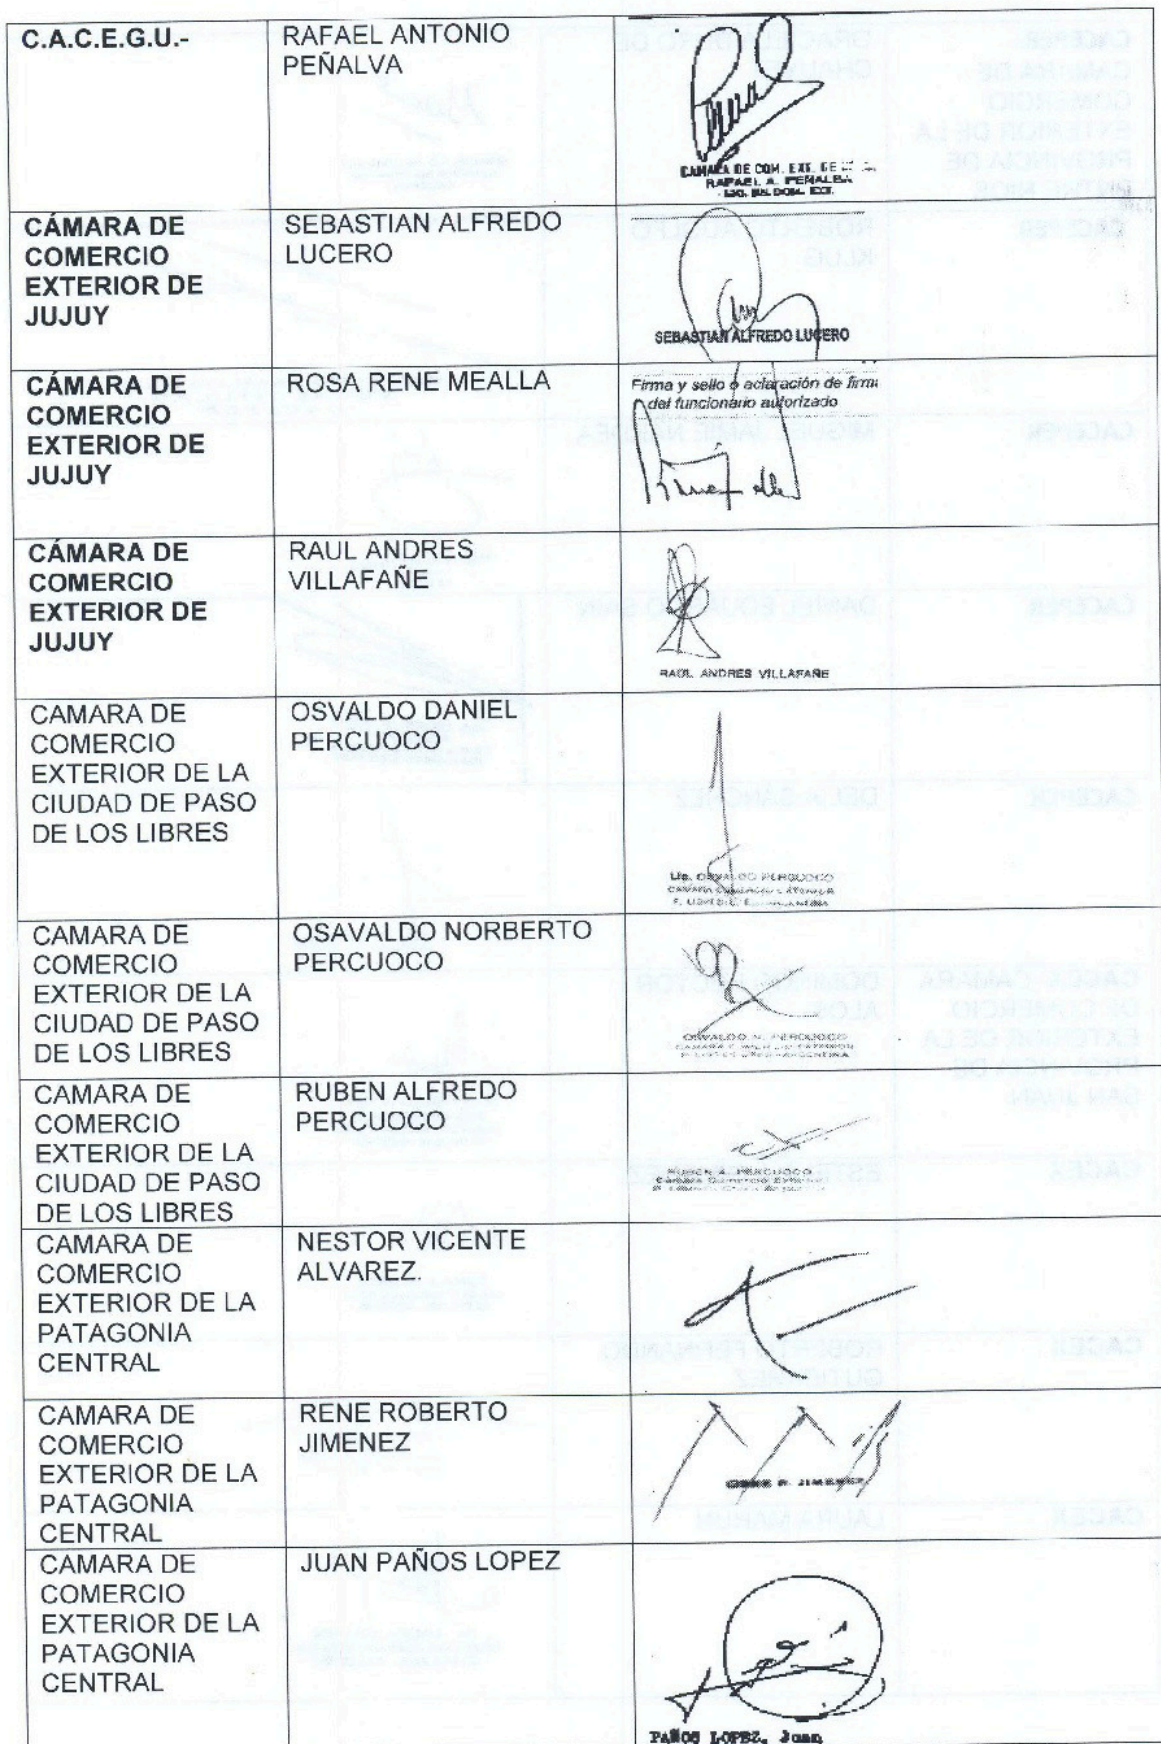 C.A.C.E.G.U.-
RAFAEL ANTONIO
PEÑALVA
CAMARA DE COM. EXT. DE
RAFAEL A. PEÑALBA
CÁMARA DE
COMERCIO
EXTERIOR DE
JUJUY
SEBASTIAN ALFREDO
LUCERO
SEBASTIAN ALFREDO LUCERO
CÁMARA DE
COMERCIO
EXTERIOR DE
JUJUY
ROSA RENE MEALLA
Firma y sello o aclaración de firma
del funcionario autorizado
CÁMARA DE
COMERCIO
EXTERIOR DE
JUJUY
RAUL ANDRES
VILLAFAÑE
RAUL ANDRES VILLAFAÑE
CAMARA DE
COMERCIO
EXTERIOR DE LA
CIUDAD DE PASO
DE LOS LIBRES
OSVALDO DANIEL
PERCUOCO
Lic. OSVALDO PERCUOCO
CAMARA COMERCIO EXTERIOR
CAMARA DE
COMERCIO
EXTERIOR DE LA
CIUDAD DE PASO
DE LOS LIBRES
OSAVALDO NORBERTO
PERCUOCO
OSWALDO N. PERCUOCO
CAMARA DE
COMERCIO
EXTERIOR DE LA
CIUDAD DE PASO
DE LOS LIBRES
RUBEN ALFREDO
PERCUOCO
RUBEN A. PERCUOCO
Camara Comercio Exterior
CAMARA DE
COMERCIO
EXTERIOR DE LA
PATAGONIA
CENTRAL
NESTOR VICENTE
ALVAREZ.
CAMARA DE
COMERCIO
EXTERIOR DE LA
PATAGONIA
CENTRAL
RENE ROBERTO
JIMENEZ
RENE R. JIMENEZ
CAMARA DE
COMERCIO
EXTERIOR DE LA
PATAGONIA
CENTRAL
JUAN PAÑOS LOPEZ
PAÑOS LOPEZ, Juan